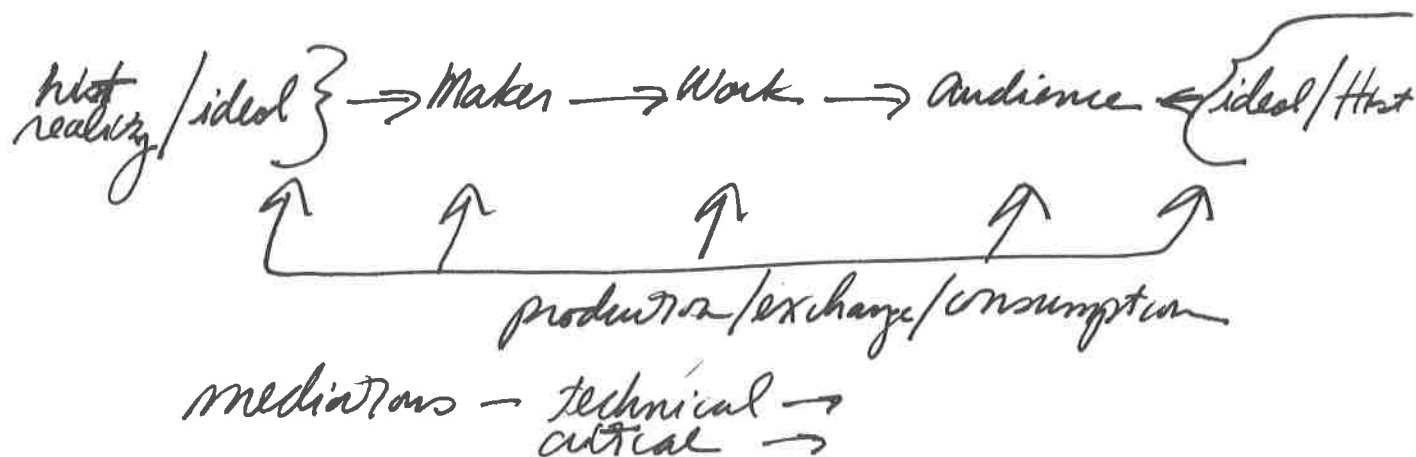 hist reality / ideol } → Maker → Work → audience ← { ideol / Hist
production/exchange/consumption
mediations – technical →
critical →